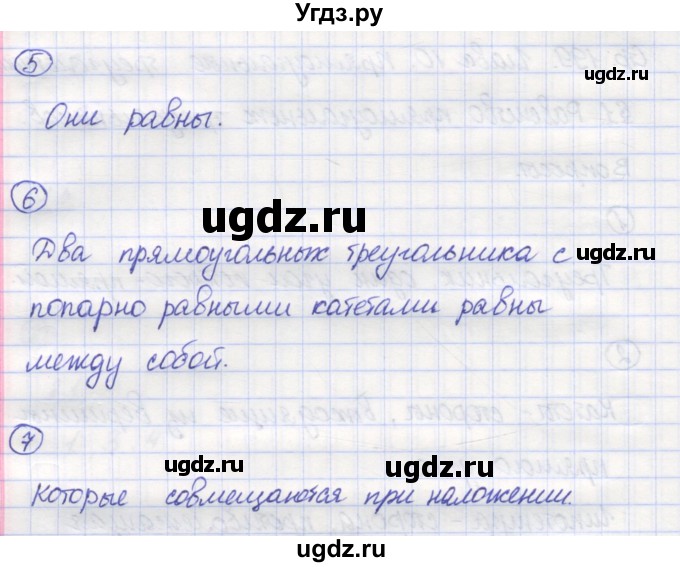 Угдз.ру
5
ugdz.ru
Они равны.
6
ugdz.ru
Два прямоугольных треугольника с
ugdz.ru
попарно равными катетами равны
между собой.
7
ugdz.ru
ugdz.ru
Которые совмещаются при наложении.
ugdz.ru